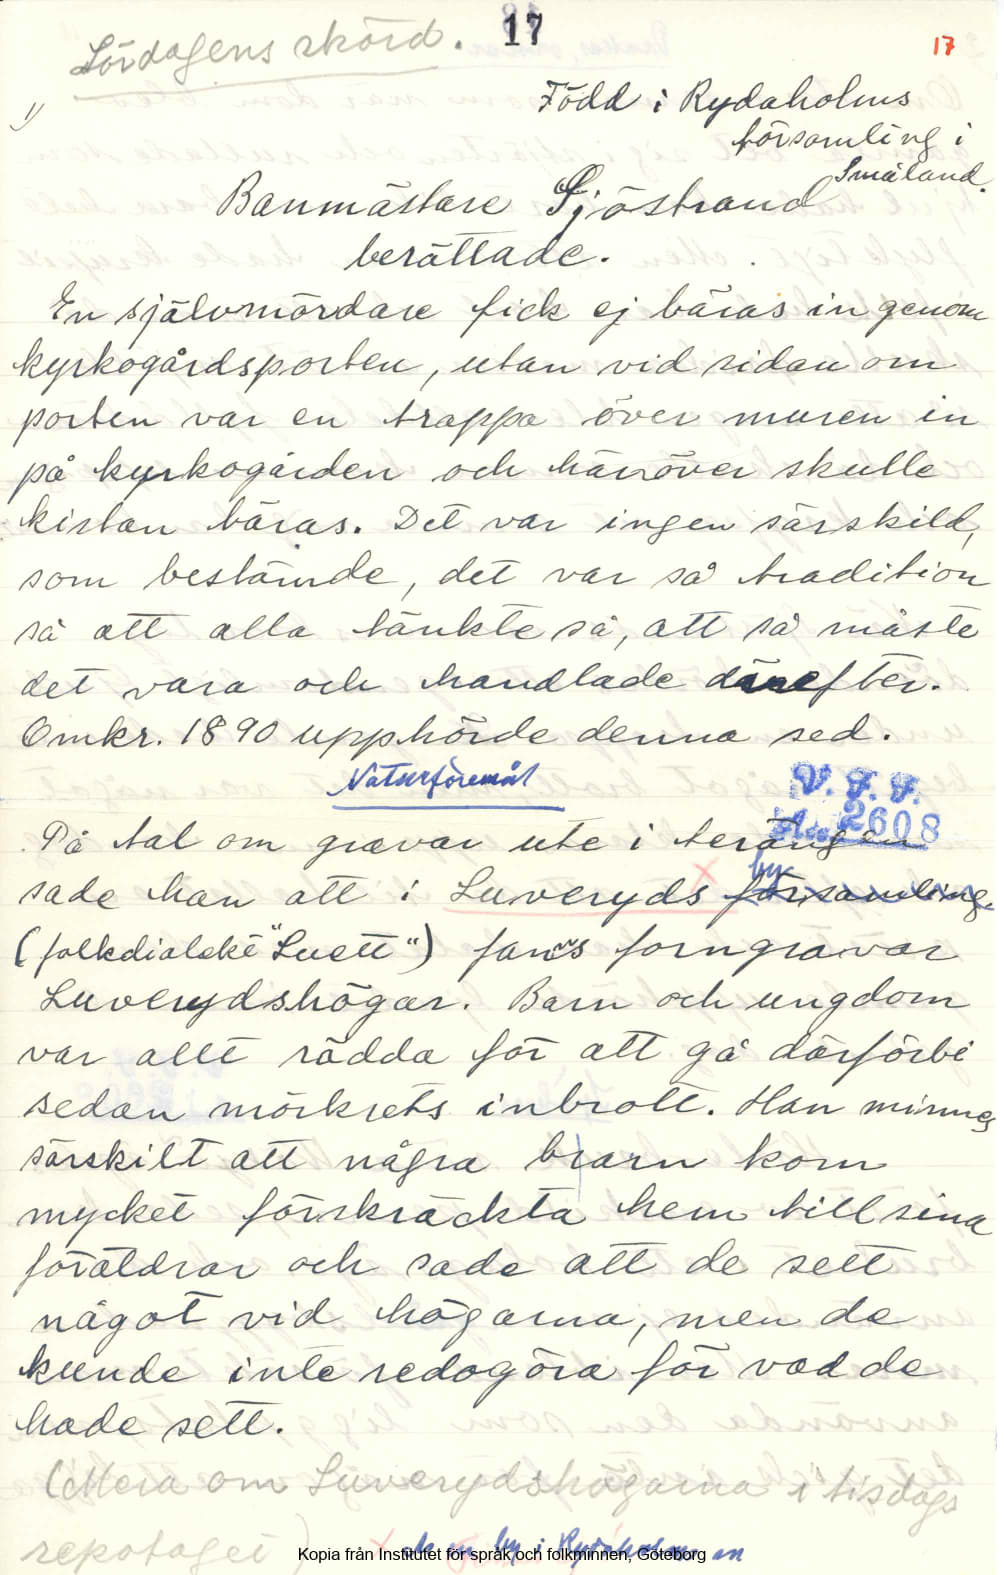 17
Lördagens skörd.
17
1)
Född i Rydaholms
församling i
Småland.
Banmästare Sjöstrand
berättade.
En självmördare fick ej bäras in genom
kyrkogårdsporten, utan vid sidan om
porten var en trappa över muren in
på kyrkogården och häröver skulle
kistan bäras. Det var ingen särskild,
som bestämde, det var så tradition
så att alla tänkte så, att så måste
det vara och handlade därefter.
Omkr. 1890 upphörde denna sed.
Naturföremål
V. F. F.
2608
På tal om gravar ute i terängen
by
sade han att i Luveryds församling.
(folkdialekt "Luett") fanns forngravar
Luverydshögar. Barn och ungdom
var allt rädda för att gå därförbi
sedan mörkrets inbrott. Han minnes
särskilt att några barn kom
mycket förskräckta hem till sina
föräldrar och sade att de sett
något vid högarna, men de
kunde inte redogöra för vad de
hade sett.
(Mera om Luverydshögarna i tisdags
repotaget)
by i Rydaholm sn
Kopia från Institutet för språk och folkminnen, Göteborg